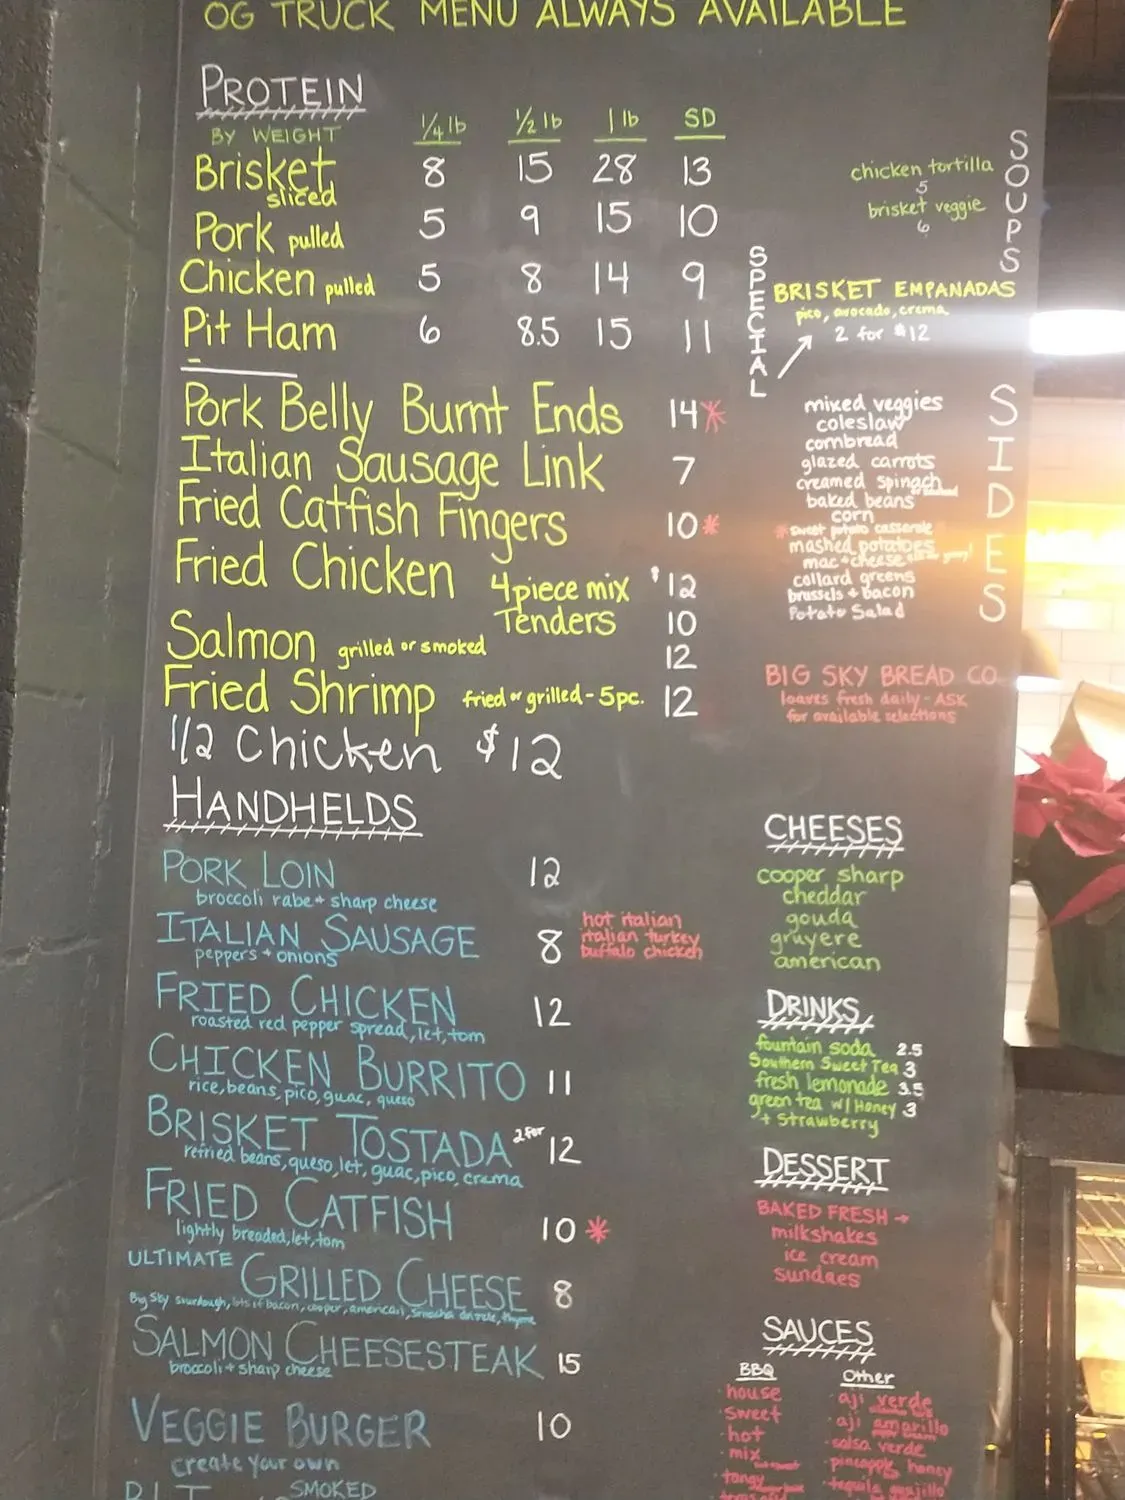 OG TRUCK MENU ALWAYS AVAILABLE
PROTEIN
BY WEIGHT 1/4 lb 1/2 lb 1 lb SD
Brisket sliced 8 15 28 13
Pork pulled 5 9 15 10
Chicken pulled 5 8 14 9
Pit Ham 6 8.5 15 11
Pork Belly Burnt Ends 14*
Italian Sausage Link 7
Fried Catfish Fingers 10*
Fried Chicken 4 piece mix $12
Tenders 10
Salmon grilled or smoked 12
Fried Shrimp fried or grilled - 5pc. 12
1/2 Chicken $12
HANDHELDS
PORK LOIN 12
broccoli rabe + sharp cheese
ITALIAN SAUSAGE 8
peppers + onions
hot italian
italian turkey
buffalo chicken
FRIED CHICKEN 12
roasted red pepper spread, let, tom
CHICKEN BURRITO 11
rice, beans, pico, guac, queso
BRISKET TOSTADA 2 for 12
refried beans, queso, let, guac, pico, crema
FRIED CATFISH 10*
lightly breaded, let, tom
ULTIMATE GRILLED CHEESE 8
Big Sky sourdough, lots of bacon, cooper, american, sriracha drizzle, thyme
SALMON CHEESESTEAK 15
broccoli + sharp cheese
VEGGIE BURGER 10
create your own
SMOKED
SOUPS
chicken tortilla
5
brisket veggie
6
SPECIAL
BRISKET EMPANADAS
pico, avocado, crema
2 for $12
SIDES
mixed veggies
coleslaw
cornbread
glazed carrots
creamed spinach
baked beans
corn
* sweet potato casserole
mashed potatoes
mac + cheese
collard greens
brussels + bacon
Potato Salad
BIG SKY BREAD CO
loaves fresh daily - ASK
for available selections
CHEESES
cooper sharp
cheddar
gouda
gruyere
american
DRINKS
fountain soda 2.5
Southern Sweet Tea 3
fresh lemonade 3.5
green tea w/ Honey 3
+ Strawberry
DESSERT
BAKED FRESH →
milkshakes
ice cream
sundaes
SAUCES
BBQ
· house
· sweet
· hot
· mix
· tangy
Other
· aji verde
· aji amarillo
· salsa verde
· pineapple honey
· tequila guajillo